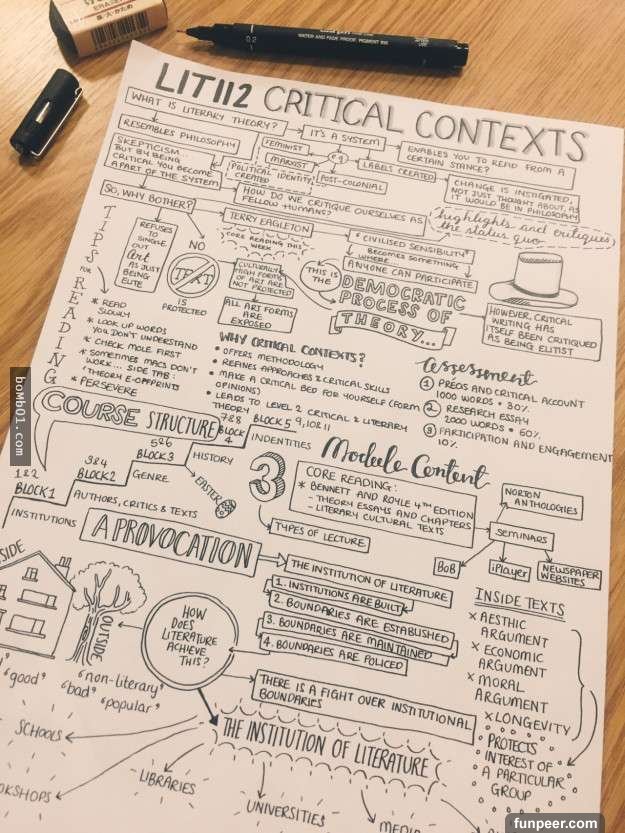 ERASE
0.2
WATER AND FADE PROOF, PIGMENT INK
LIT112 CRITICAL CONTEXTS
WHAT IS LITERARY THEORY?
IT'S A SYSTEM
ENABLES YOU TO READ FROM A
CERTAIN STANCE?
RESEMBLES PHILOSOPHY
FEMINIST
MARXIST
eg
POST-COLONIAL
LABELS CREATED
POLITICAL IDENTITY
CREATED
SKEPTICISM...
BUT BY BEING
CRITICAL YOU BECOME
A PART OF THE SYSTEM
CHANGE IS INSTIGATED,
NOT JUST THOUGHT ABOUT, AS
IT WOULD BE IN PHILOSOPHY
SO, WHY BOTHER?
HOW DO WE CRITIQUE OURSELVES AS
FELLOW HUMANS?
highlights and critiques
the status quo
TERRY EAGLETON
CORE READING THIS
WEEK
"CIVILISED SENSIBILITY"
BECOMES SOMETHING
WHERE
ANYONE CAN PARTICIPATE
TIPS FOR READING
REFUSES
TO SINGLE
OUT
Art
AS JUST
BEING
ELITE
NO
TEXT
IS
PROTECTED
CULTURALLY
HIGH FORMS
OF ART ARE
NOT PROTECTED
ALL ART FORMS
ARE
EXPOSED
THIS IS
THE
DEMOCRATIC
PROCESS OF
THEORY...
HOWEVER, CRITICAL
WRITING HAS
ITSELF BEEN CRITIQUED
AS BEING ELITIST
* READ
SLOWLY
* LOOK UP WORDS
YOU DON'T UNDERSTAND
* CHECK MOLE FIRST
* SOMETIMES MACS DON'T
WORK... SIDE TAB:
'THEORY E-OFFPRINTS
* PERSEVERE
WHY CRITICAL CONTEXTS?
• OFFERS METHODOLOGY
• REFINES APPROACHES & CRITICAL SKILLS
• MAKE A CRITICAL BED FOR YOURSELF (FORM
OPINIONS)
• LEADS TO LEVEL 2 CRITICAL & LITERARY
THEORY
assessment
1 PREOS AND CRITICAL ACCOUNT
1000 WORDS • 30%
2 RESEARCH ESSAY
2000 WORDS • 60%
3 PARTICIPATION AND ENGAGEMENT
10%
COURSE STRUCTURE
1&2
BLOCK1
INSTITUTIONS
3&4
BLOCK2
AUTHORS, CRITICS & TEXTS
5&6
BLOCK3
GENRE
7&8
BLOCK
4
HISTORY
BLOCK5 9,10&11
INDENTITIES
EASTER
3
Module Content
CORE READING:
* BENNETT AND ROYLE 4TH EDITION
- THEORY ESSAYS AND CHAPTERS
- LITERARY CULTURAL TEXTS
TYPES OF LECTURE
NORTON
ANTHOLOGIES
SEMINARS
BoB
iPlayer
NEWSPAPER
WEBSITES
A PROVOCATION
THE INSTITUTION OF LITERATURE
1. INSTITUTIONS ARE BUILT
2. BOUNDARIES ARE ESTABLISHED
3. BOUNDARIES ARE MAINTAINED
4. BOUNDARIES ARE POLICED
THERE IS A FIGHT OVER INSTITUTIONAL
BOUNDARIES
INSIDE TEXTS
× AESTHIC
ARGUMENT
× ECONOMIC
ARGUMENT
× MORAL
ARGUMENT
× LONGEVITY
PROTECTS
INTEREST OF
A PARTICULAR
GROUP
SIDE
OUTSIDE
HOW
DOES
LITERATURE
ACHIEVE
THIS?
"good"
"non-literary"
"bad" "popular"
THE INSTITUTION OF LITERATURE
SCHOOLS
OKSHOPS
LIBRARIES
UNIVERSITIES
MEDIA
bomb01.com
funpeer.com